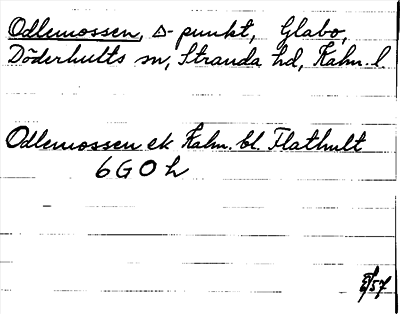 Odlemossen, Δ-punkt, Glabo,
Döderhults sn, Stranda hd, Kalm. l.
Odlemossen ek Kalm. bl. Flathult
6 G O h